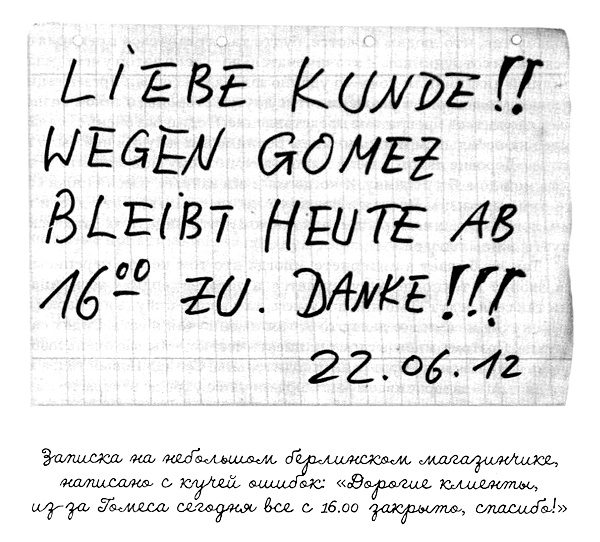 LIEBE KUNDE!!
WEGEN GOMEZ
BLEIBT HEUTE AB
16⁰⁰ ZU. DANKE!!!
22.06.12
Записка на небольшом берлинском магазинчике,
написано с кучей ошибок: «Дорогие клиенты,
из-за Гомеса сегодня все с 16.00 закрыто, спасибо!»